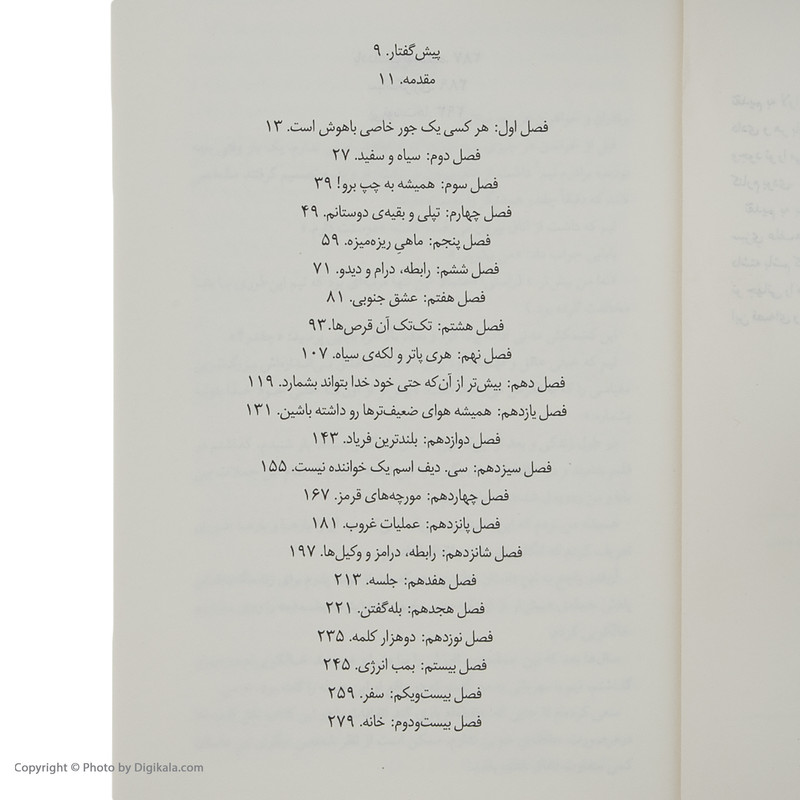 پیش‌گفتار. ۹
مقدمه. ۱۱
فصل اول: هر کسی یک جور خاصی باهوش است. ۱۳
فصل دوم: سیاه و سفید. ۲۷
فصل سوم: همیشه به چپ برو! ۳۹
فصل چهارم: تپلی و بقیه‌ی دوستانم. ۴۹
فصل پنجم: ماهیِ ریزه‌میزه. ۵۹
فصل ششم: رابطه، درام و دیدو. ۷۱
فصل هفتم: عشق جنوبی. ۸۱
فصل هشتم: تک‌تک آن قرص‌ها. ۹۳
فصل نهم: هری پاتر و لکه‌ی سیاه. ۱۰۷
فصل دهم: بیش‌تر از آن‌که حتی خود خدا بتواند بشمارد. ۱۱۹
فصل یازدهم: همیشه هوای ضعیف‌ترها رو داشته باشین. ۱۳۱
فصل دوازدهم: بلندترین فریاد. ۱۴۳
فصل سیزدهم: سی. دیف اسم یک خواننده نیست. ۱۵۵
فصل چهاردهم: مورچه‌های قرمز. ۱۶۷
فصل پانزدهم: عملیات غروب. ۱۸۱
فصل شانزدهم: رابطه، درامز و وکیل‌ها. ۱۹۷
فصل هفدهم: جلسه. ۲۱۳
فصل هجدهم: بله‌گفتن. ۲۲۱
فصل نوزدهم: دوهزار کلمه. ۲۳۵
فصل بیستم: بمب انرژی. ۲۴۵
فصل بیست‌ویکم: سفر. ۲۵۹
فصل بیست‌ودوم: خانه. ۲۷۹
Copyright © Photo by Digikala.com